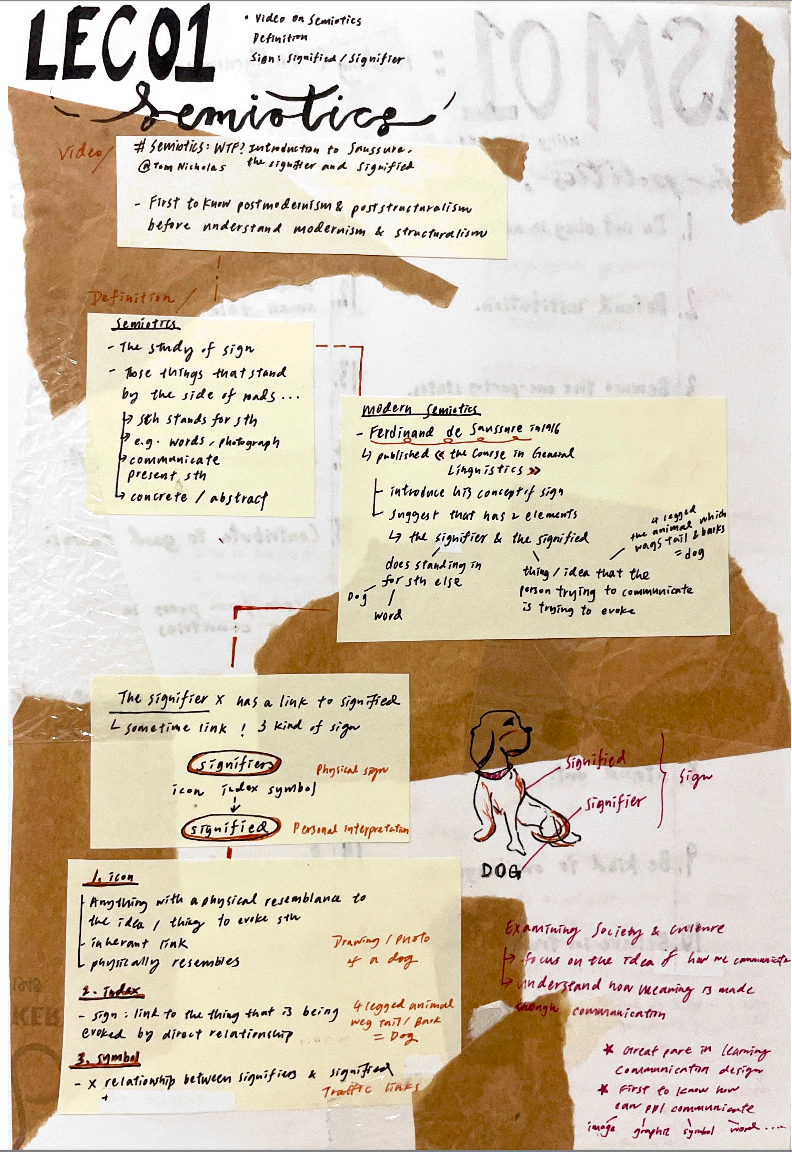 LEC01
• Video on Semiotics
Definition
Sign: Signified / Signifier
Semiotics
Video /
# Semiotics: WTF? Introduction to Saussure,
@Tom Nicholas the signifier and signified
- First to know postmodernism & poststructuralism
before understand modernism & structuralism
Definition /
Semiotics
- The study of sign
- Those things that stand
by the side of roads...
→ sth stands for sth
→ e.g. words, photograph
→ communicate
present sth
→ concrete / abstract
modern semiotics
- Ferdinand de Saussure in 1916
↳ published « the Course in General
Linguistics »
introduce his concept of sign
suggest that has 2 elements
↳ the signifier & the signified
4 legged
the animal which
wags tail & barks
= dog
does standing in
for sth else
Dog
word
thing / idea that the
person trying to communicate
is trying to evoke
The signifier x has a link to signified
↳ sometime link ! 3 kind of sign
signifiers
Physical sign
icon index symbol
signified
Personal interpretation
signified
signifier
Sign
DOG
1. icon
Anything with a physical resemblance to
the idea / thing to evoke sth
- inherant link
- physically resembles
Drawing / Photo
of a dog
2. index
- sign: link to the thing that is being
evoked by direct relationship
4 legged animal
weg tail / Bark
= Dog
3. symbol
- x relationship between signifiers & signified
Traffic links
Examining Society & culture
→ focus on the idea of how we communicate
→ understand how meaning is made
through communication
* Great part in learning
communication design
* First to know how
can ppl communicate
image graphic symbol word ....